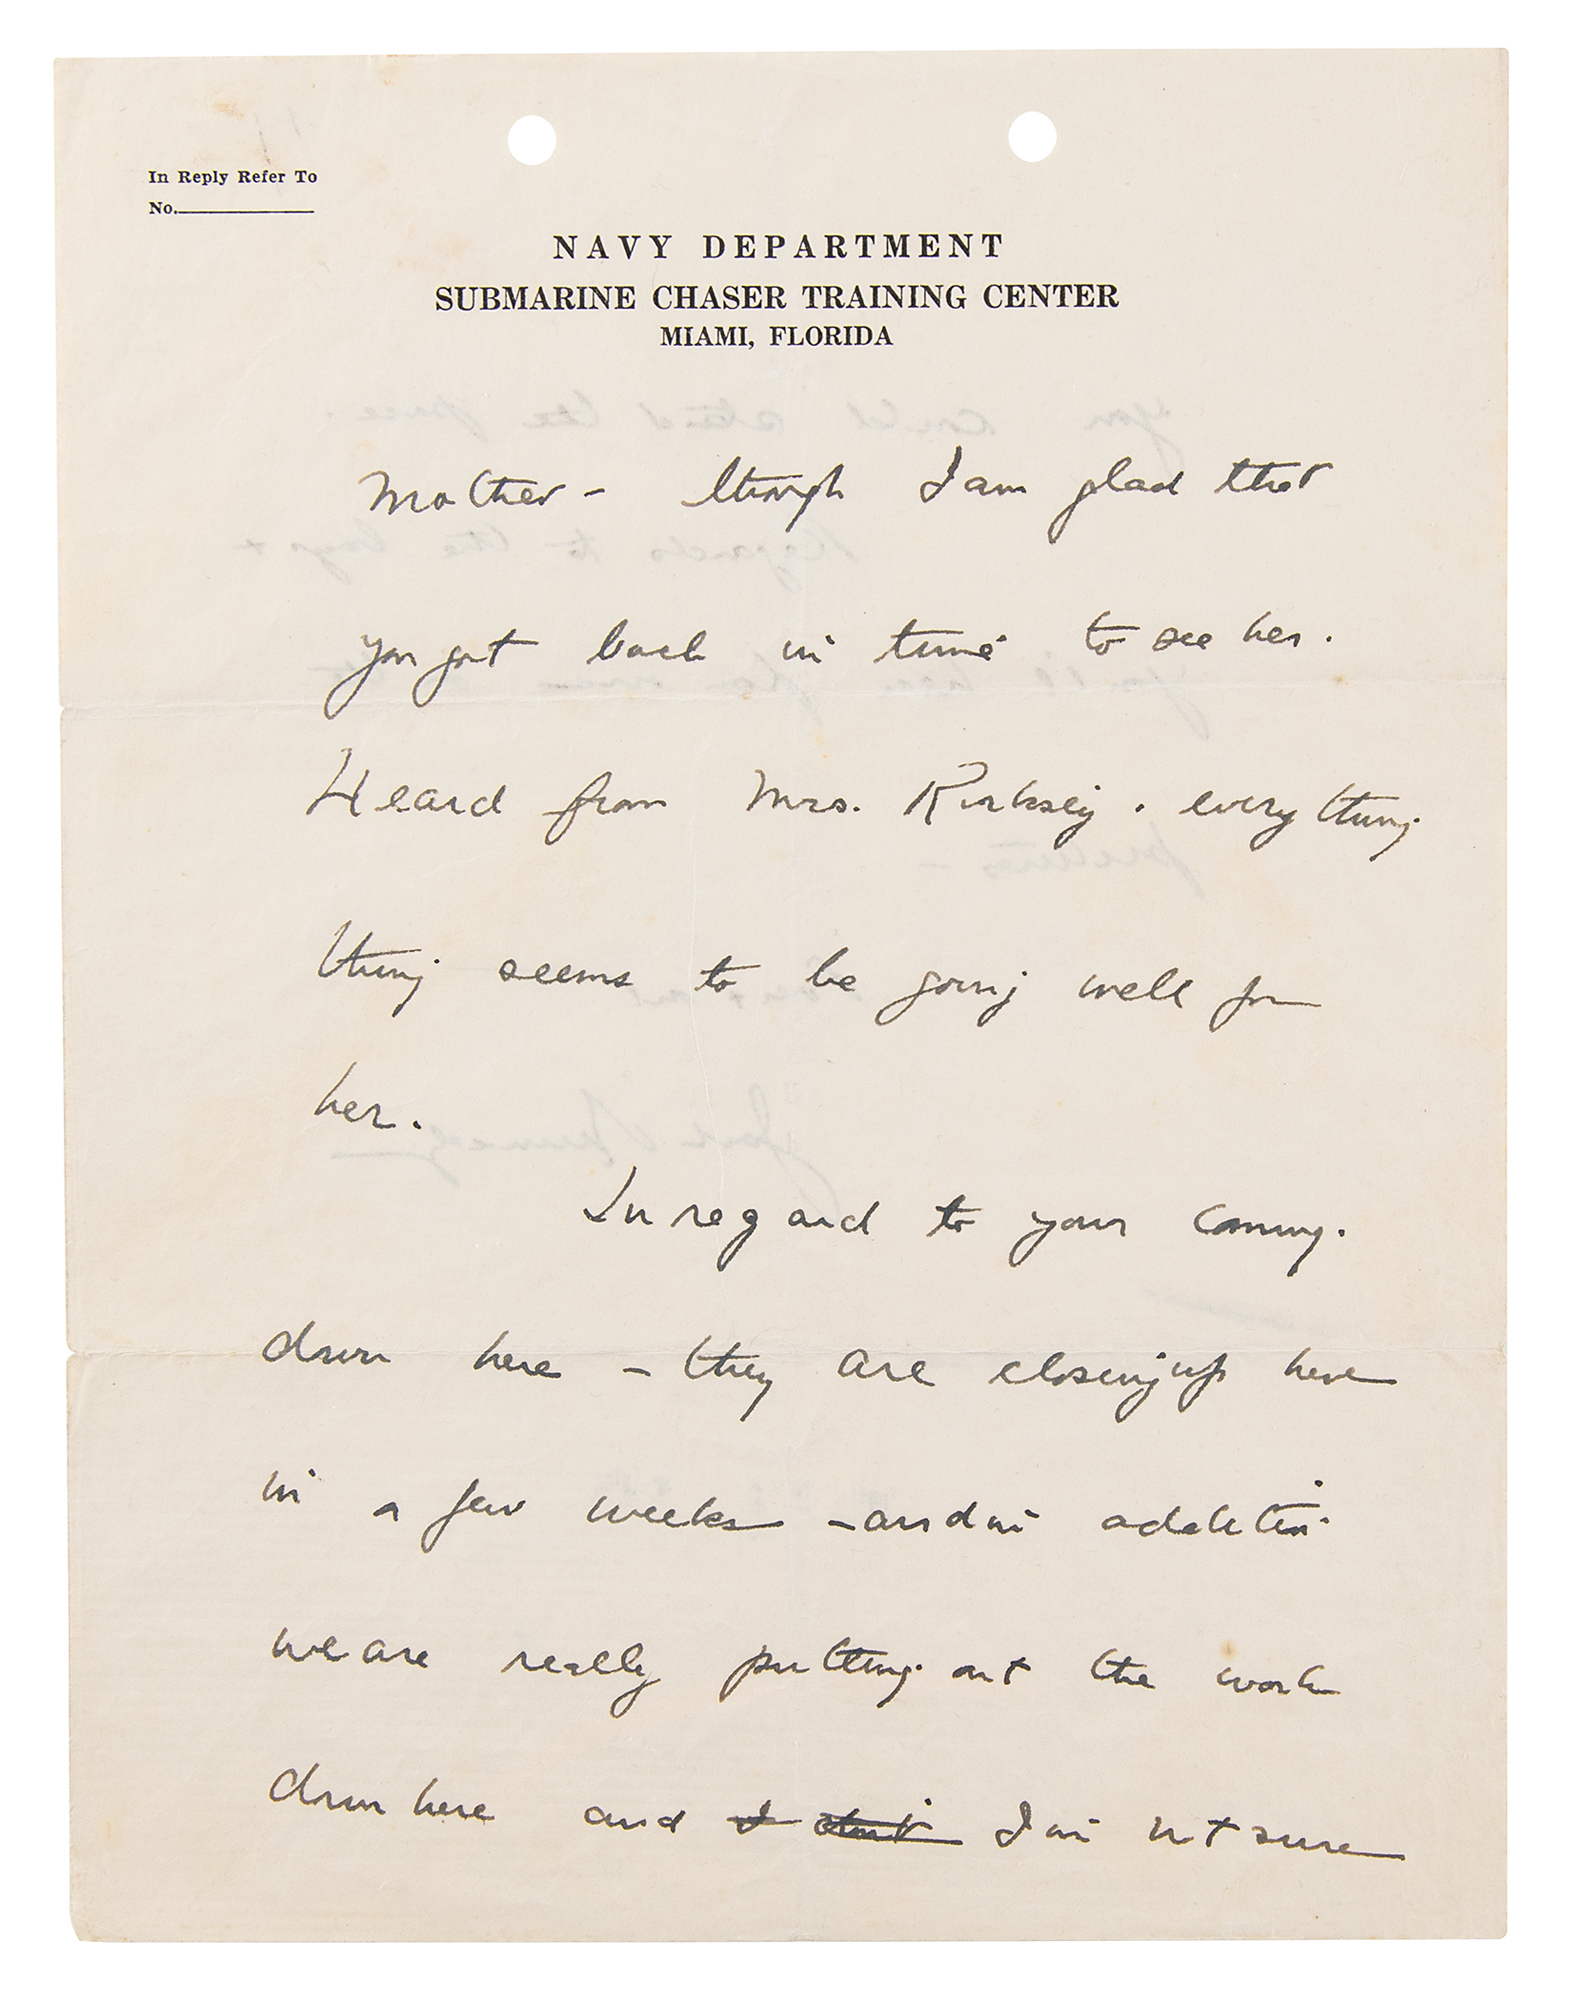 In Reply Refer To
No.
NAVY DEPARTMENT
SUBMARINE CHASER TRAINING CENTER
MIAMI, FLORIDA
Mother - though I am glad that
you got back in time to see her.
Heard from Mrs. Kirksey. everything
thing seems to be going well for
her.
In regard to your coming
down here - they are closing up here
in a few weeks - and in addition
we are really putting out the work
down here and I don't I'm not sure